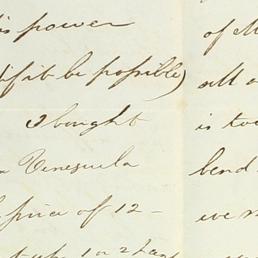 is power
if it be possible)
I bought
Venezuela
price of 12 -
1 or 2
of
all
is too
bend
we